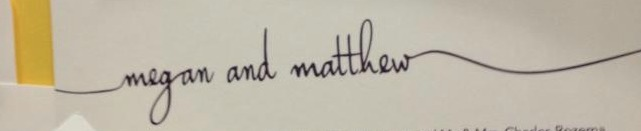 megan and matthew
& Mrs. Charles Rozema